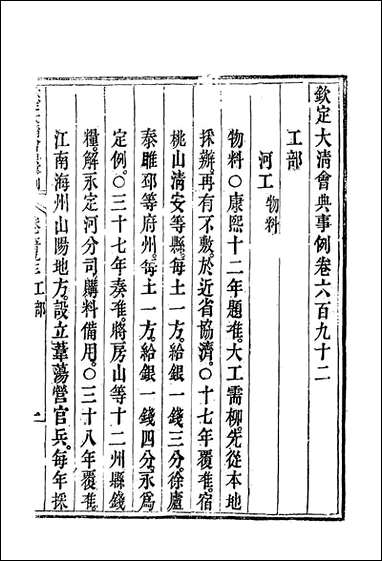 欽定大清會典事例卷六百九十二
工部
河工物料
物料○康熙十二年題准。大工需柳。先從本地
採辦。再有不敷。於近省協濟。○十七年覆准。宿
桃山清安等縣。每土一方。給銀一錢三分。徐廬
泰睢邳等府州。每土一方。給銀一錢四分。永為
定例。○三十七年奏准。將房山等十二州縣錢
糧。解永定河分司。購料備用。○三十八年覆准。
江南海州山陽地方。設立葦蕩營官兵。每年採
工部